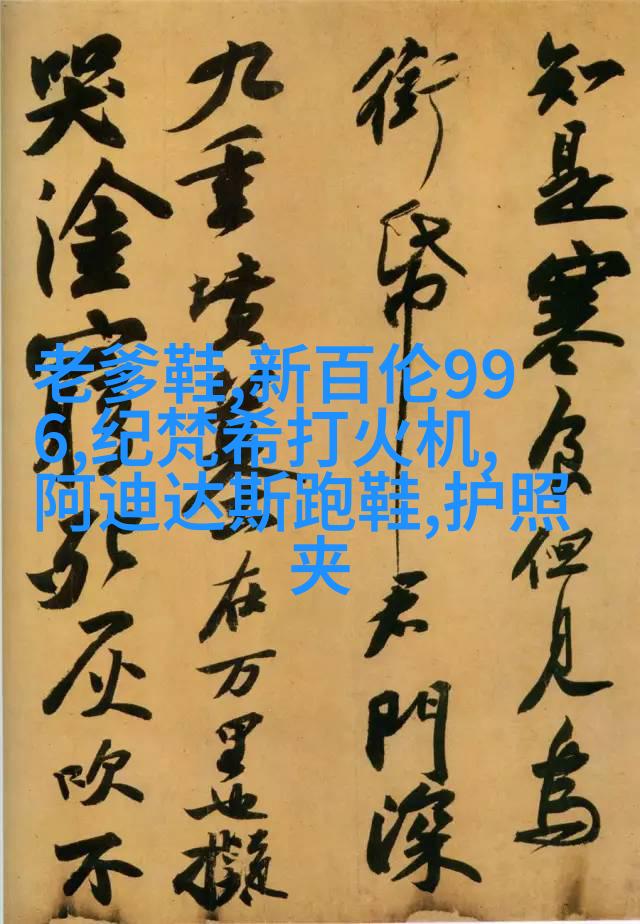 知是寒食但見烏
銜帋君門深
九重墳墓在万里也擬
哭塗窮死灰吹不
老爹鞋,新百伦99
6,纪梵希打火机,
阿迪达斯跑鞋,护照
夹